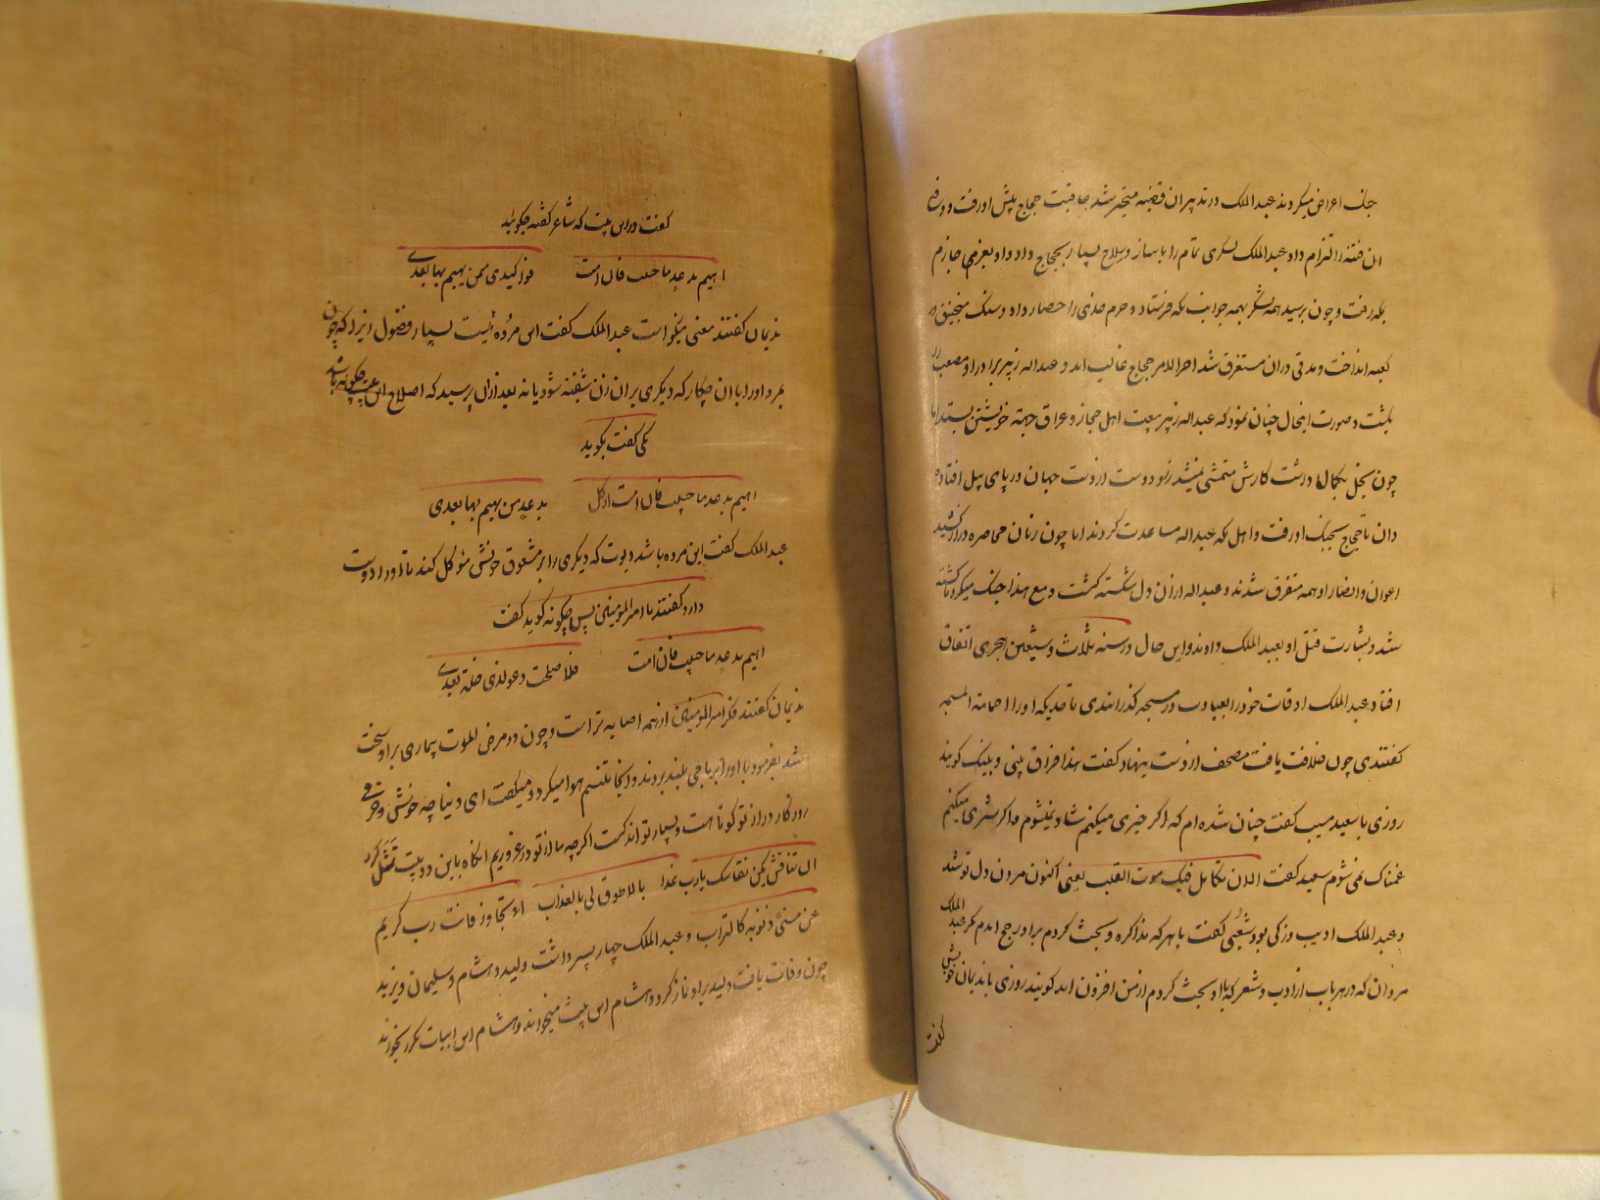 جنک اعراض میکردند عبد الملک در تدبیر ان قضیه متحیر شد عاقبت حجاج پیش او رفت و دفع
ان فتنه را التزام داد عبد الملک لشکری تمام را با ساز و سلاح بسیار بحجاج داد و او بعزمی جازم
بمکه رفت و چون برسید همه لشکر بهمه جوانب مکه فرستاد و حرم مدنی را حصار داد و سنک منجنیق در
کعبه انداخت و مدتی در ان مستغرق شد اخر الامر حجاج غالب امد و عبد اله زبیر برادر او مصعب را
بکشت و صورت اینحال چنان نمود که عبد اله زبیر بیعت اهل حجاز و عراق جهته خویشتن بستد اما
چون بخل بکمال داشت کارش متمشی نمیشد زود دست از وی جهان در پای پیل افتاده
دان تا حجاج بجنک او رفت و اهل مکه عبد اله مساعدت کردند اما چون زمان محاصره دراز کشید
اعوان و انصار او همه متفرق شدند و عبد اله از ان دل شکسته کشت و مع هذا جنک میکرد تا کشته
شد و بشارت قتل او بعبد الملک دادند و این حال در سنه ثلاث و سبعین هجری اتفاق
افتاد عبد الملک اوقات خود را بعبادت در مسجد کذرانیدی تا حدیکه او را حمامة المسجد
کفتندی چون خلافت یافت مصحف از دست بنهاد کفت هذا فراق بینی و بینک کویند
روزی با سعید مسیب کفت چنان شده ام که اکر خیری میکنم شاد نمیشوم و اکر شری میکنم
غمناک نمی شوم سعید کفت الان تکامل فیک موت القلب یعنی اکنون مردن دل تو شد
و عبد الملک ادیب و زکی بود و شعبی کفت با هر که مذاکره و بحث کردم براو رجح امدم مکر عبد الملک
مروان که در هر باب از ادب و شعر که با او بحث کردم از من افزون امد کویند روزی با ندیمان خویش
کفت
کفت در این بیت که شاعر کفته چکوئید
اهیم بدعد ما حییت فان امت فوا کبدی ممن یهیم بها بعدی
ندیمان کفتند معنی نیکو است عبد الملک کفت این مرده ایست بسیار فضول زیرا که چون
بمرد او را با ان چکار که دیکری بر ان زن شیفته شود یا نه بعد از ان پرسید که اصلاح این بیت چکونه باشد
یکی کفت بکوید
اهیم بدعد ما حییت فان امت اوکل بدعد من یهیم بها بعدی
عبد الملک کفت این مرده باشد دیوث که دیکری را بر معشوق خویش موکل کند تا او را دوست
دارد کفتند یا امیر المومنین پس چکونه کوید کفت
اهیم بدعد ما حییت فان امت فلا صلحت دعد لذی خلة بعدی
ندیمان کفتند فکر امیر المومنین از همه اصابه تر است و چون در مرض الموت بیماری بر او سخت
شد بفرمود تا او را بر بامی بلند بردند و انجا تنسم هوا میکرد و میکفت ای دنیا چه خوشی و خرمی
روزکار دراز تو کوتاهست و بسیار تو اندکست اکرچه ما از تو در غروریم انکاه باین دو بیت تمثل کرد
ان تناقش یکن نقاشک یا رب عذا با لا طوق لی بالعذاب او تجاوز فانت رب کریم
عن مسئ ذنوبه کالتراب و عبد الملک چهار پسر داشت ولید و هشام و سلیمان و یزید
چون وفات یافت ولید بر او نماز کرد و هشام این بیت میخواند و هشام این ابیات مکرر بخواند